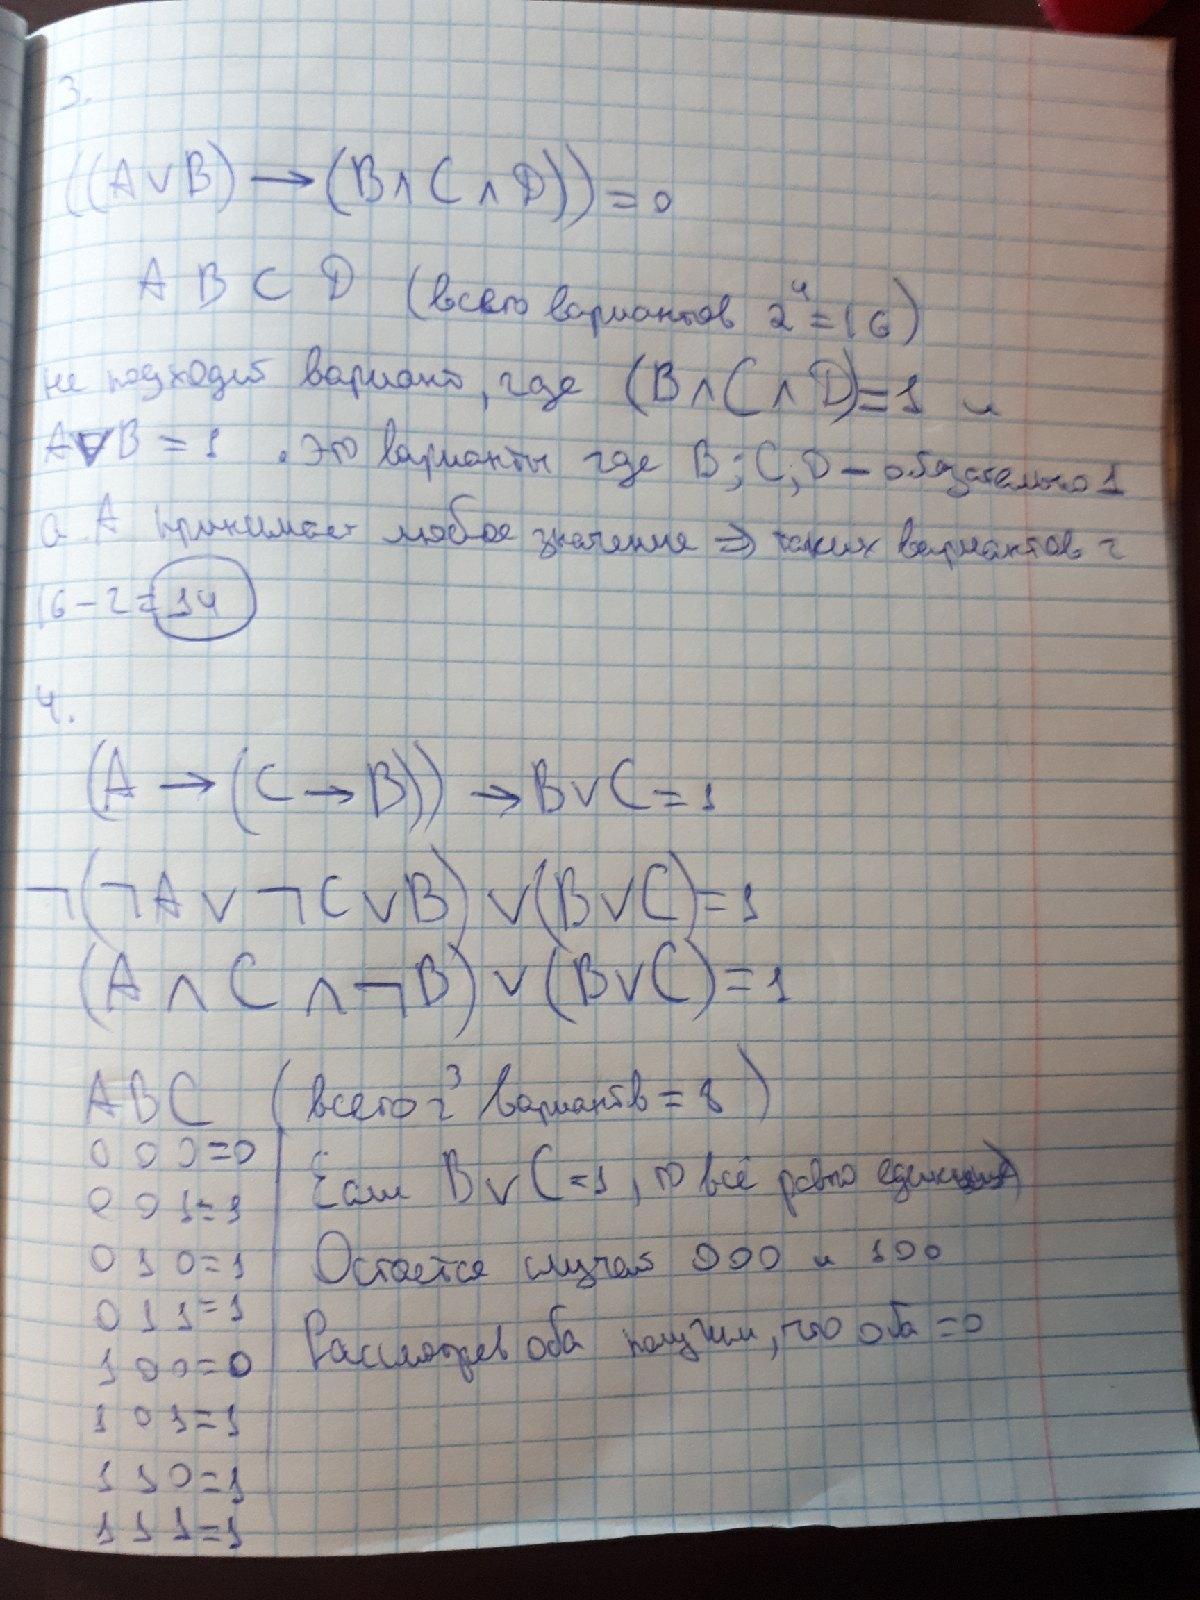 3.
((A∨B) → (B∧C∧D)) = 0
A B C D (всего вариантов 2⁴ = 16)
не подходит вариант, где (B∧C∧D) = 1 и
A∨B = 1. Это варианты где B; C, D – обязательно 1
а A принимает любое значение ⇒ таких вариантов 2
16 – 2 = 14
4.
(A → (C → B)) → B∨C = 1
¬(¬A ∨ ¬C ∨ B) ∨ (B∨C) = 1
(A ∧ C ∧ ¬B) ∨ (B∨C) = 1
A B C (всего 2³ вариантв = 8)
0 0 0 = 0
0 0 1 = 1
0 1 0 = 1
0 1 1 = 1
1 0 0 = 0
1 0 1 = 1
1 1 0 = 1
1 1 1 = 1
Если B∨C = 1, то всё равно
Остаётся случай 000 и 100
Рассмотрев оба получим, что оба = 0